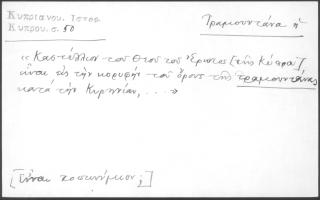 Κυπριανου. Ιστορ.
Κυπρου. σ. 50
Τραμουντάνα ἡ
«Καστέλλιον του Θεού του Έρωτος [τῆς Κύπρου]
εἶναι εἰς τὴν κορυφὴν τοῦ ὄρους τῆς τραμουντάνας
κατὰ τὴν Κυρηνίαν, ...»
[Εἶναι τοπωνύμιον;]